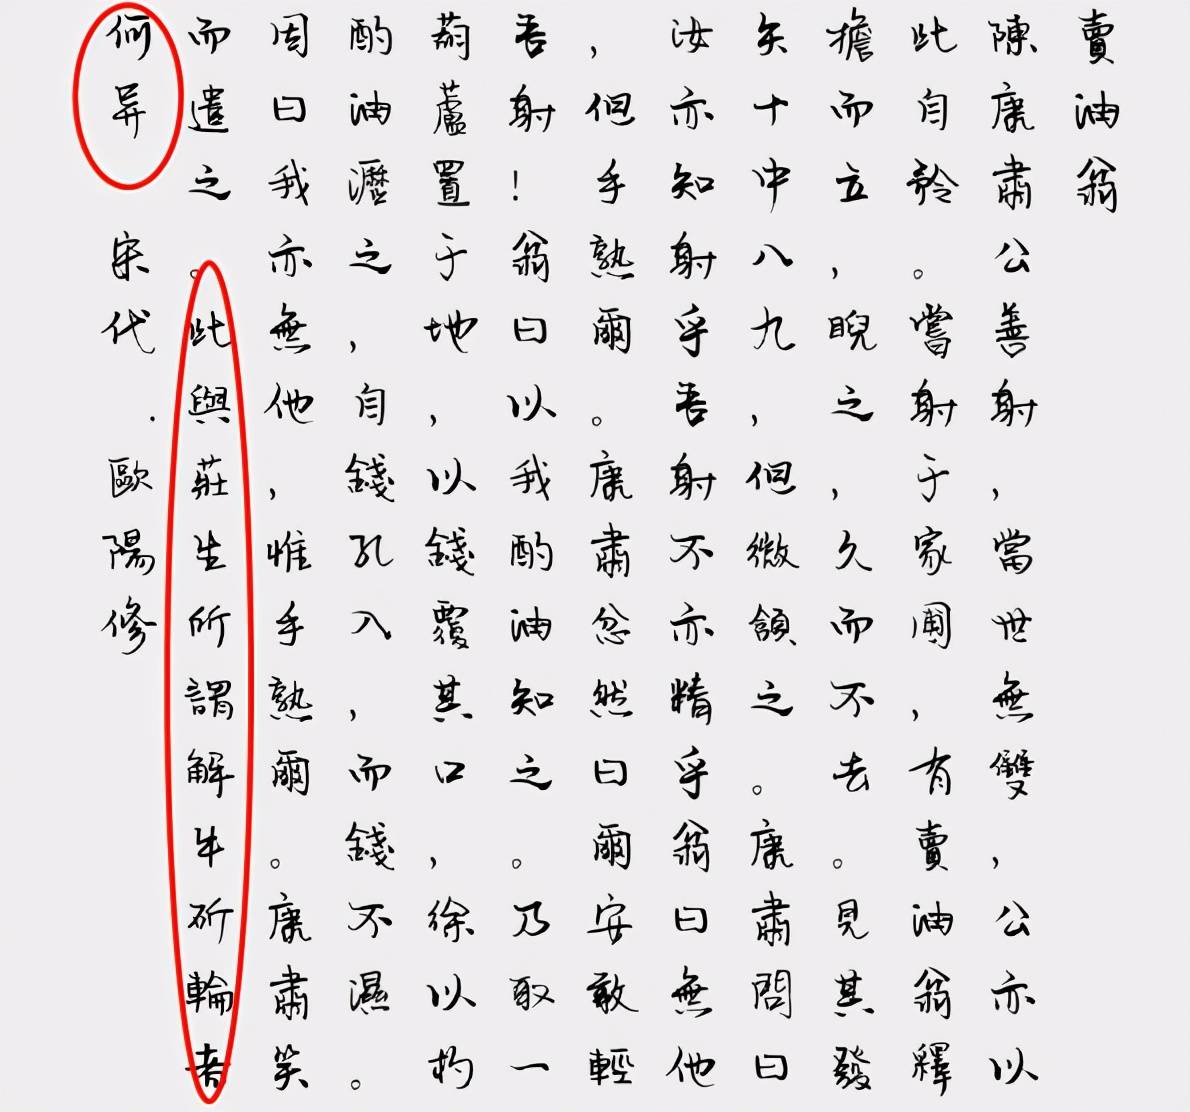 賣油翁
陳康肅公善射，當世無雙，公亦以
此自矜。嘗射于家圃，有賣油翁釋
擔而立，睨之，久而不去。見其發
矢十中八九，但微頷之。康肅問曰
汝亦知射乎吾射不亦精乎翁曰無他
，但手熟爾。康肅忿然曰爾安敢輕
吾射！翁曰以我酌油知之。乃取一
葫蘆置于地，以錢覆其口，徐以杓
酌油瀝之，自錢孔入，而錢不濕。
因曰我亦無他，惟手熟爾。康肅笑
而遣之。此與莊生所謂解牛斫輪者
何异 宋代．歐陽修